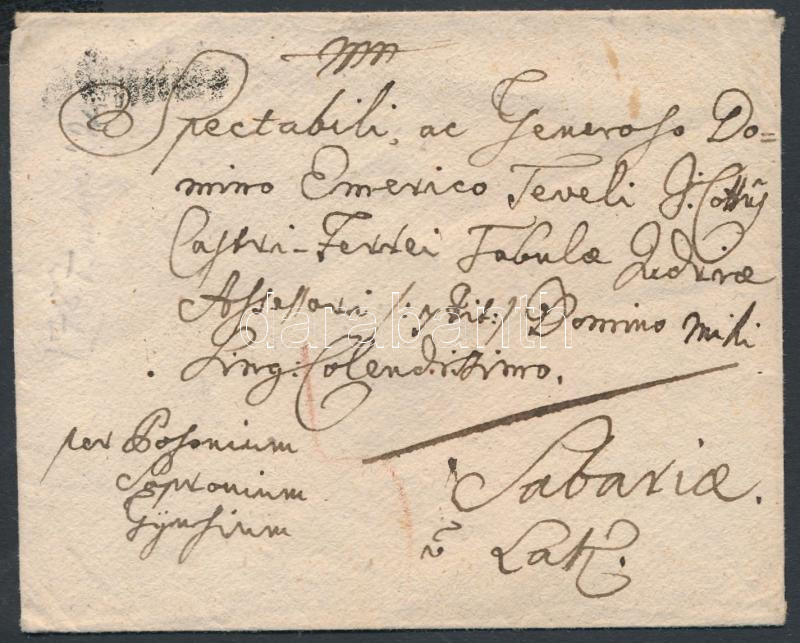 Spectabili, ac Generoso Do=
mino Emerico Teveli I: Cottus
Castri-Ferrei Tabulæ Iudriæ
Assessori /: p Tit: / Domino mihi
Sing: Colendissimo.
per Posonium
Sopronium
Gÿnsium
Sabariæ.
darabanth